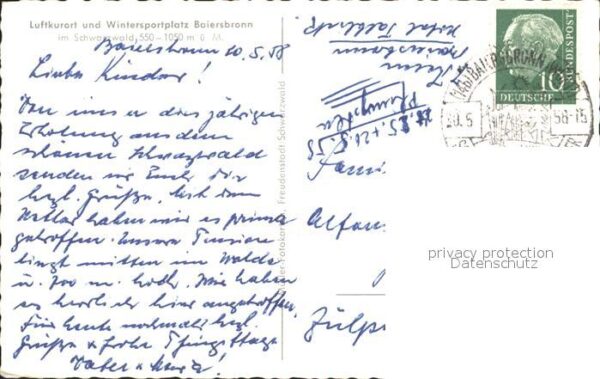 Luftkurort und Wintersportplatz Baiersbronn
im Schwarzwald, 550–1050 m ü. M.
Baiersbronn 20.5.58
Liebe Kinder!
Von uns diesjährigen
Erholung aus dem
schönen Schwarzwald
senden wir Euch die
herzl. Grüße. Mit dem
Wetter haben wir es prima
getroffen. Unsere Pension
liegt mitten im Walde
u. 700 m. hoch. Wir haben
es herrlich hier angetroffen.
Für heute nochmals herzl.
Grüße & frohe Pfingsttage
Vater &
Freudenstadt Schwarzwald
Baiersbronn
Hotel
Pfingsten
Alfon
Zülp
(14b) BAIERSBRONN
20.5. 58-15
10
DEUTSCHE
BUNDESPOST
privacy protection
Datenschutz